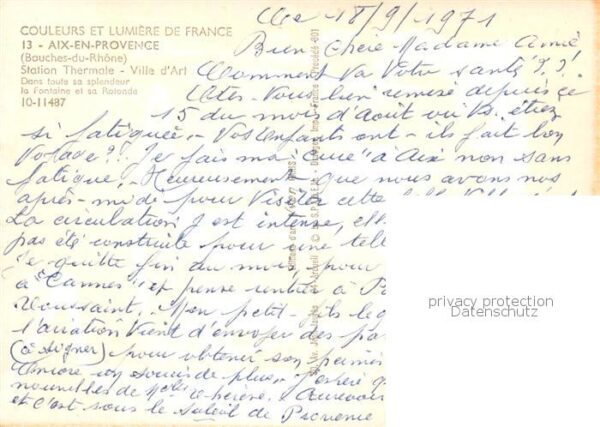 COULEURS ET LUMIÈRE DE FRANCE
13 - AIX-EN-PROVENCE
(Bouches-du-Rhône)
Station Thermale - Ville d'Art
Dans toute sa splendeur
la Fontaine et sa Rotonde
10-11487
le 18/9/1971
Bien chère Madame Amie
Comment va votre santé ? ?
Êtes-vous bien remise depuis ce
15 du mois d'Août où vs. étiez
si fatiguée - Vos enfants ont-ils fait bon
voyage ? Je fais ma "cure" à Aix non sans
fatigue. Heureusement que nous avons nos
après-midi pour visiter cette
La circulation y est intense, elle
pas été construite pour une telle
Je quitte fin du mois, pour
à "Cannes" et pense rentrer à Pa
Toussaint. Mon petit-fils
l'aviation vient d'envoyer des pa
(à signer) pour obtenir son permis
Encore un soucis de plus. - J'espère
nouvelles de
et c'est sous le soleil de Provence
privacy protection
Datenschutz